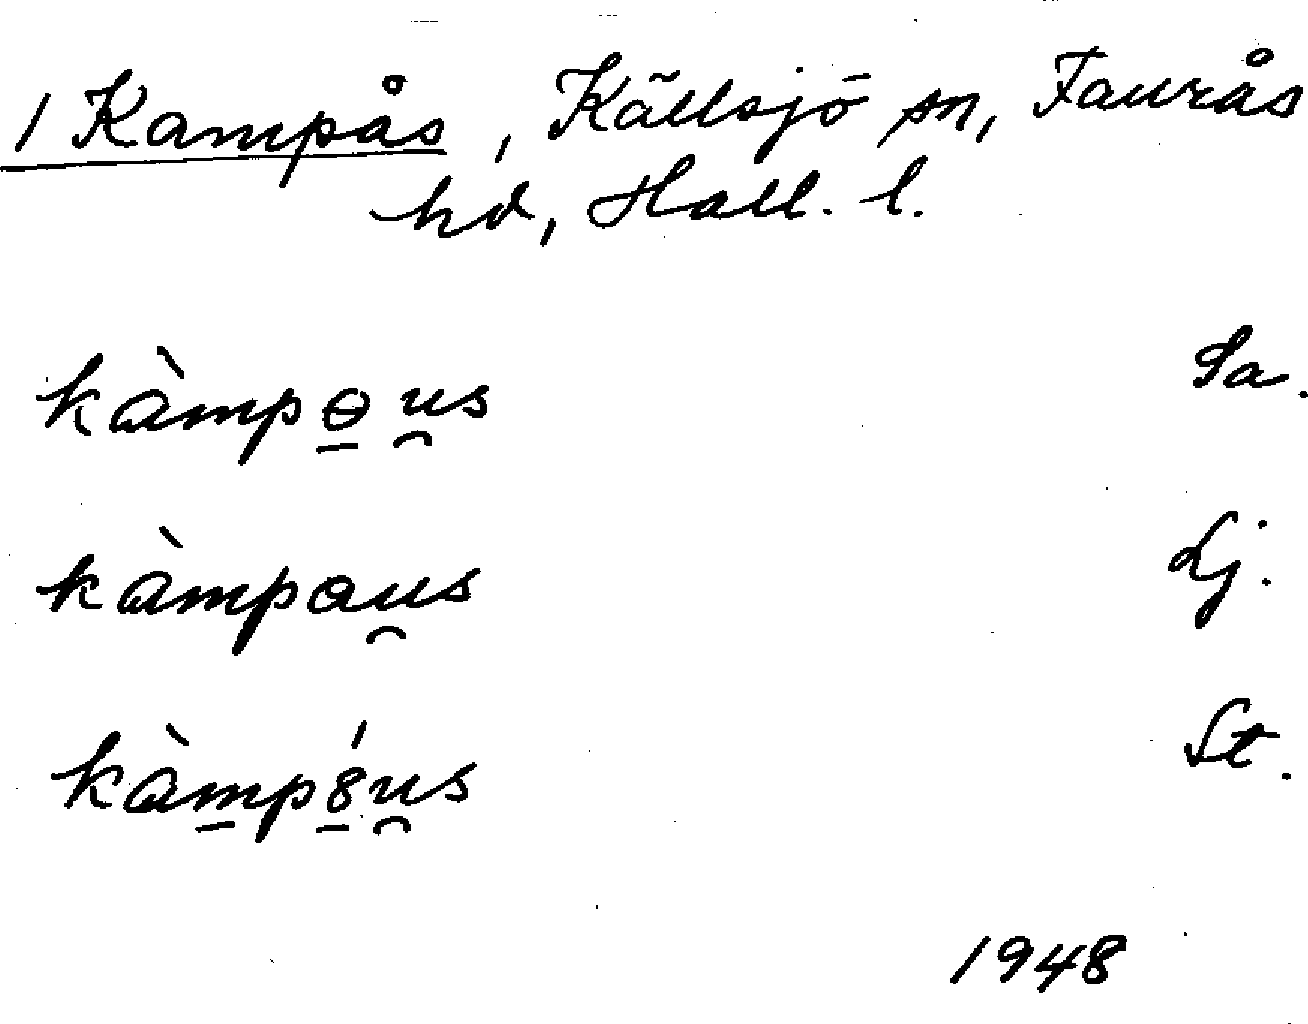 1 Kampås, Källsjö sn, Faurås
hd, Hall. l.
kàmpɵ̲u̯s Sa.
kàmpau̯s Lj.
kàm̲p8̲́u̯s St.
1948